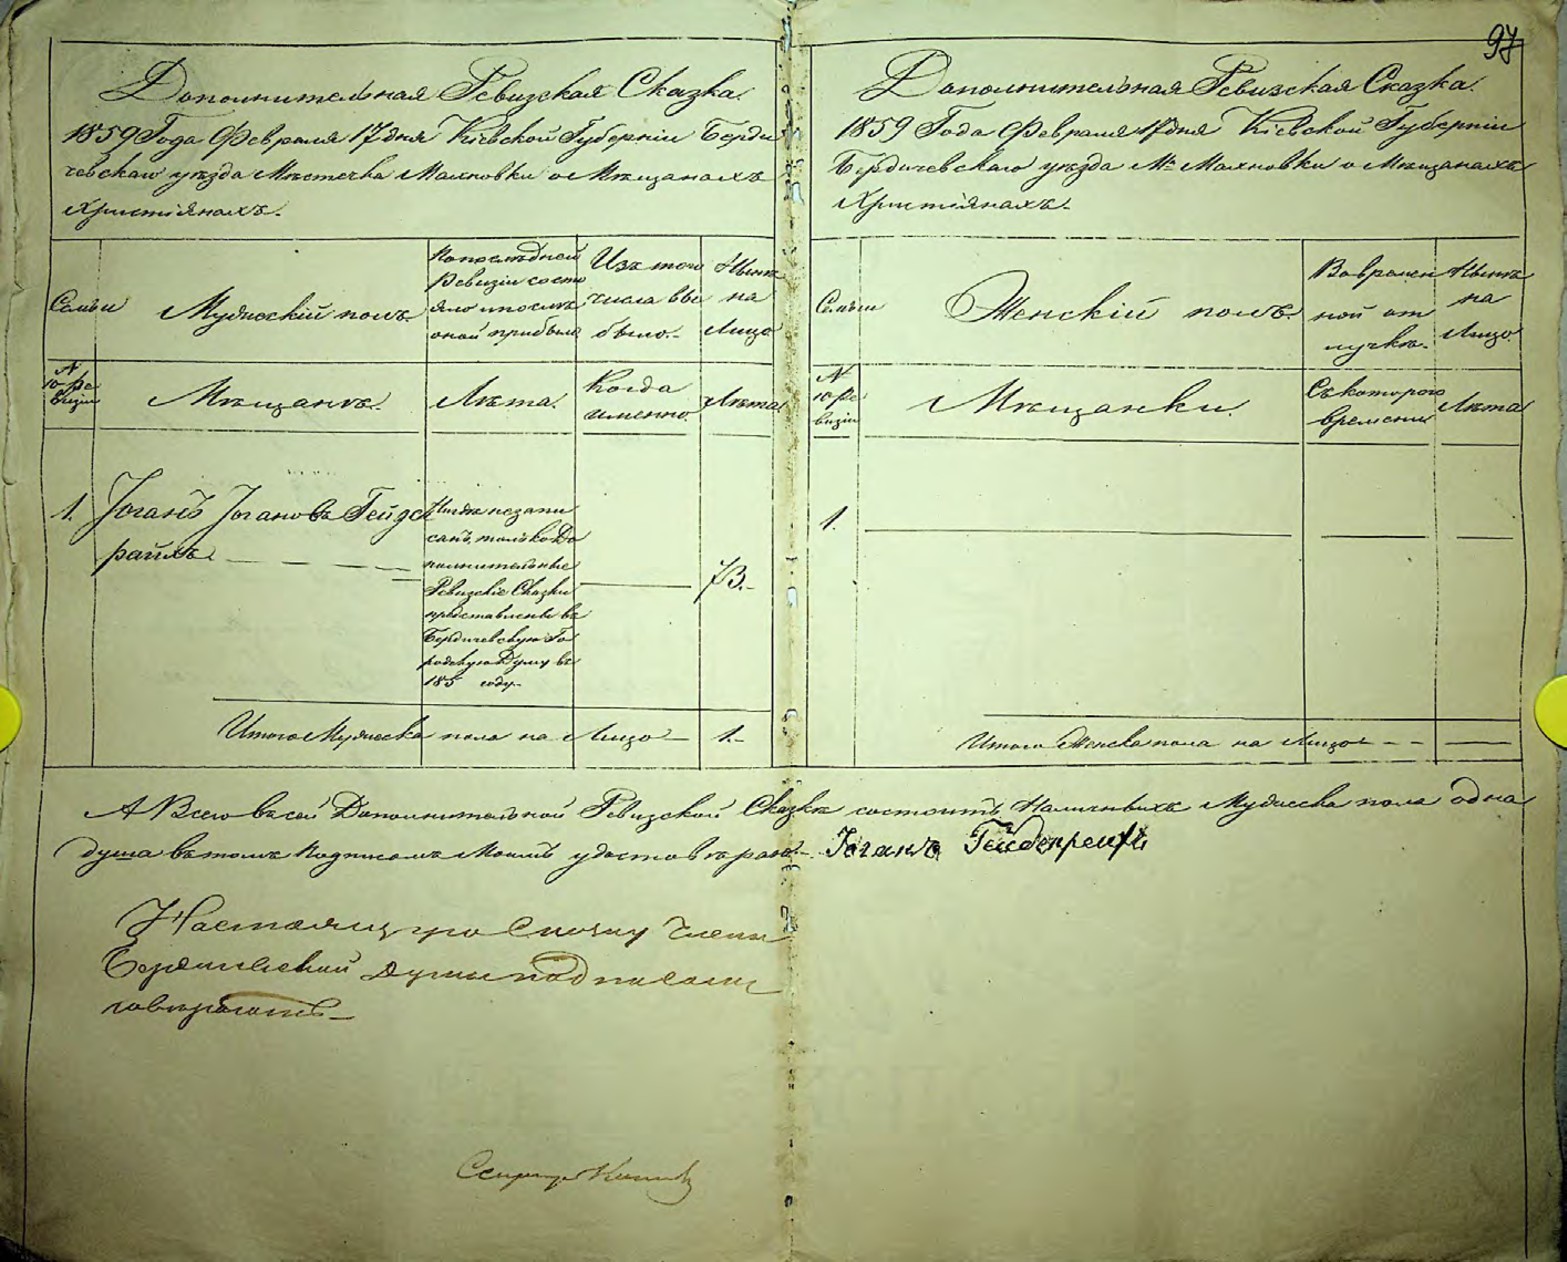 97
Дополнительная Ревизская Сказка.
1859 Года Февраля 17 дня Кіевской Губерніи Берди
чевскаго уѣзда Мѣстечка Махновки о Мѣщанахъ
Христіянахъ.
Семьи
Мужескій полъ.
По послѣдней
Ревизіи состо
яло и послѣ
оной прибыло
Изъ того
числа вы
было.
Нынѣ
на
Лицо
№
10 Ре
визіи
Мѣщанѣ.
Лѣта.
Когда
именно.
Лѣта
1.
Іоганъ Іогановъ Гейде
райхъ
Нигдѣ незапи
санъ, только До
полнительные
Ревизскіе Сказки
представлены въ
Бердичевскую Го
родскую Думу въ
185 году.
73.
Итого Мужеска пола на Лицо 1.
Дополнительная Ревизская Сказка.
1859 Года Февраля 17 дня Кіевской Губерніи
Бердичевскаго уѣзда М. Махновки о Мѣщанахъ
Христіянахъ.
Семьи
Женскій полъ.
Во времен
ной от
лучкѣ.
Нынѣ
на
Лицо.
№
10 Ре
визіи
Мѣщанки.
Съ котораго
времени
Лѣта
1.
Итого Женска пола на Лицо
А Всего въ сей Дополнительной Ревизской Сказкѣ состоитъ Наличныхъ Мужеска пола одна
душа въ томъ Подписомъ Моимъ удостовѣряю. Іоганъ Гейденрейхъ
Настоящую Сказку Члены
Бердичевской Думы подписомъ